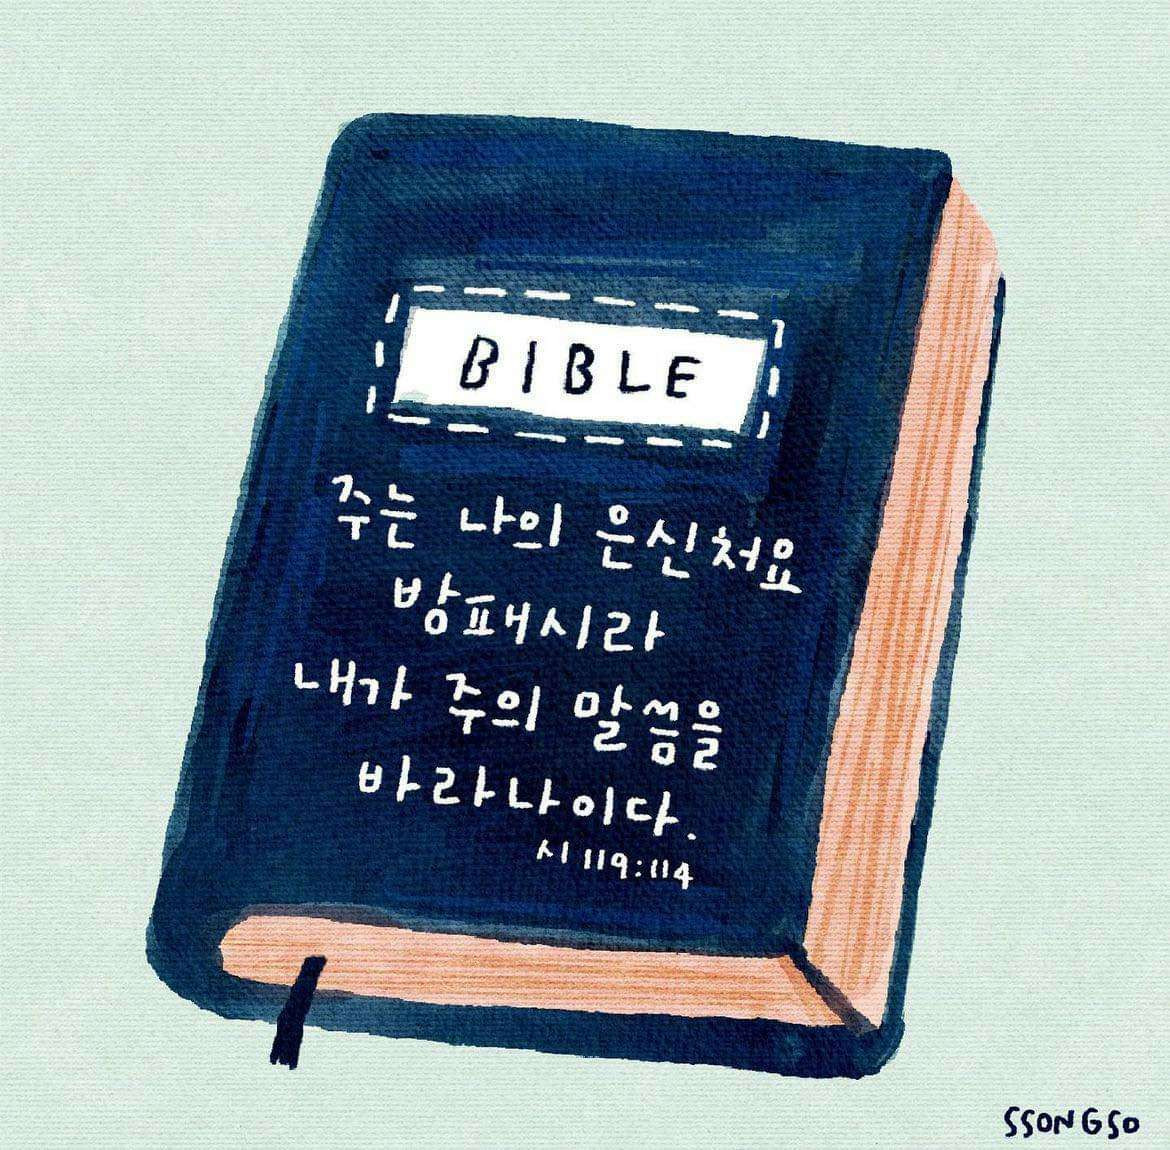 BIBLE
주는 나의 은신처요
방패시라
내가 주의 말씀을
바라나이다.
시 119:114
SSONGSO